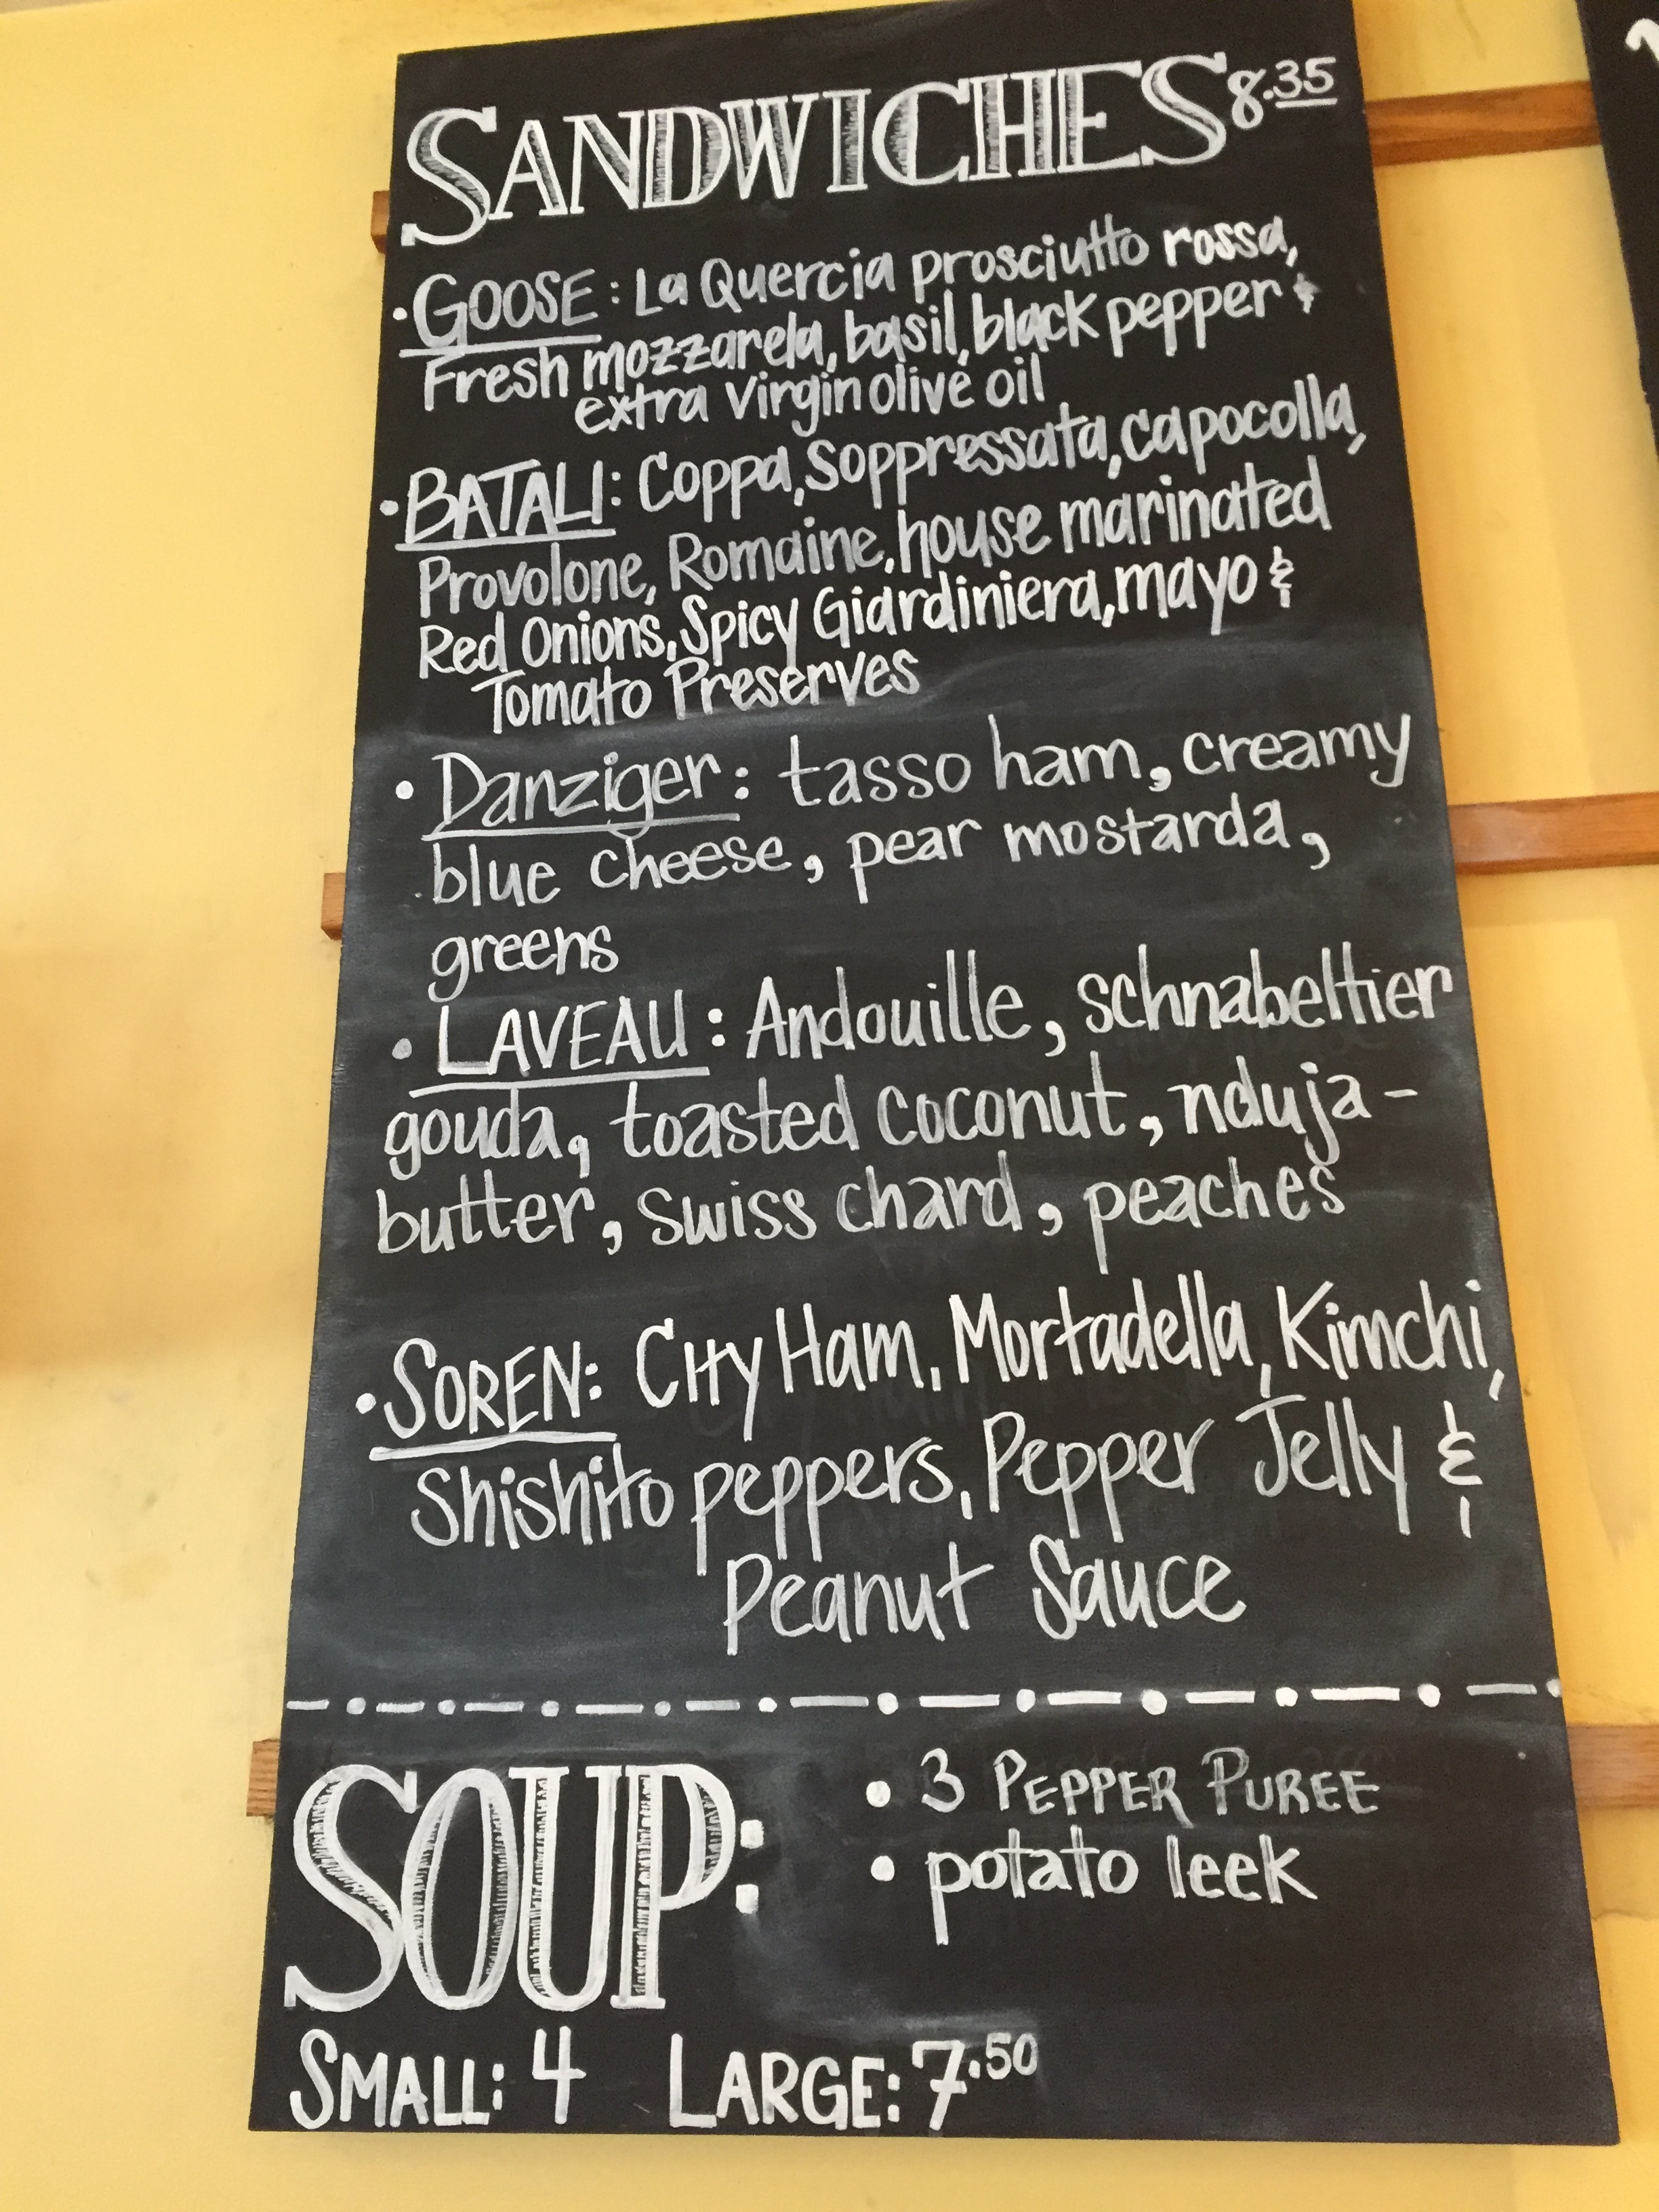 SANDWICHES 8.35
• GOOSE: La Quercia prosciutto rossa,
Fresh mozzarela, basil, black pepper &
extra virgin olive oil
• BATALI: Coppa, Soppressata, capocolla,
Provolone, Romaine, house marinated
Red Onions, Spicy Giardiniera, mayo &
Tomato Preserves
• Danziger: tasso ham, creamy
blue cheese, pear mostarda,
greens
• LAVEAU: Andouille, schnabeltier
gouda, toasted coconut, nduja-
butter, swiss chard, peaches
• SOREN: City Ham, Mortadella, Kimchi,
Shishito peppers, Pepper Jelly &
Peanut Sauce
SOUP:
• 3 PEPPER PUREE
• potato leek
SMALL: 4 LARGE: 7.50